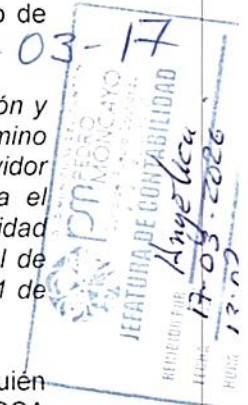 o de
03-17
ón y
mino
vidor
a el
idad
l de
1 de
uién
PEDRO
MONCAYO
JEFATURA DE CONTABILIDAD
RECIBIDO POR: Angelica
FECHA: 17-03-2026
HORA: